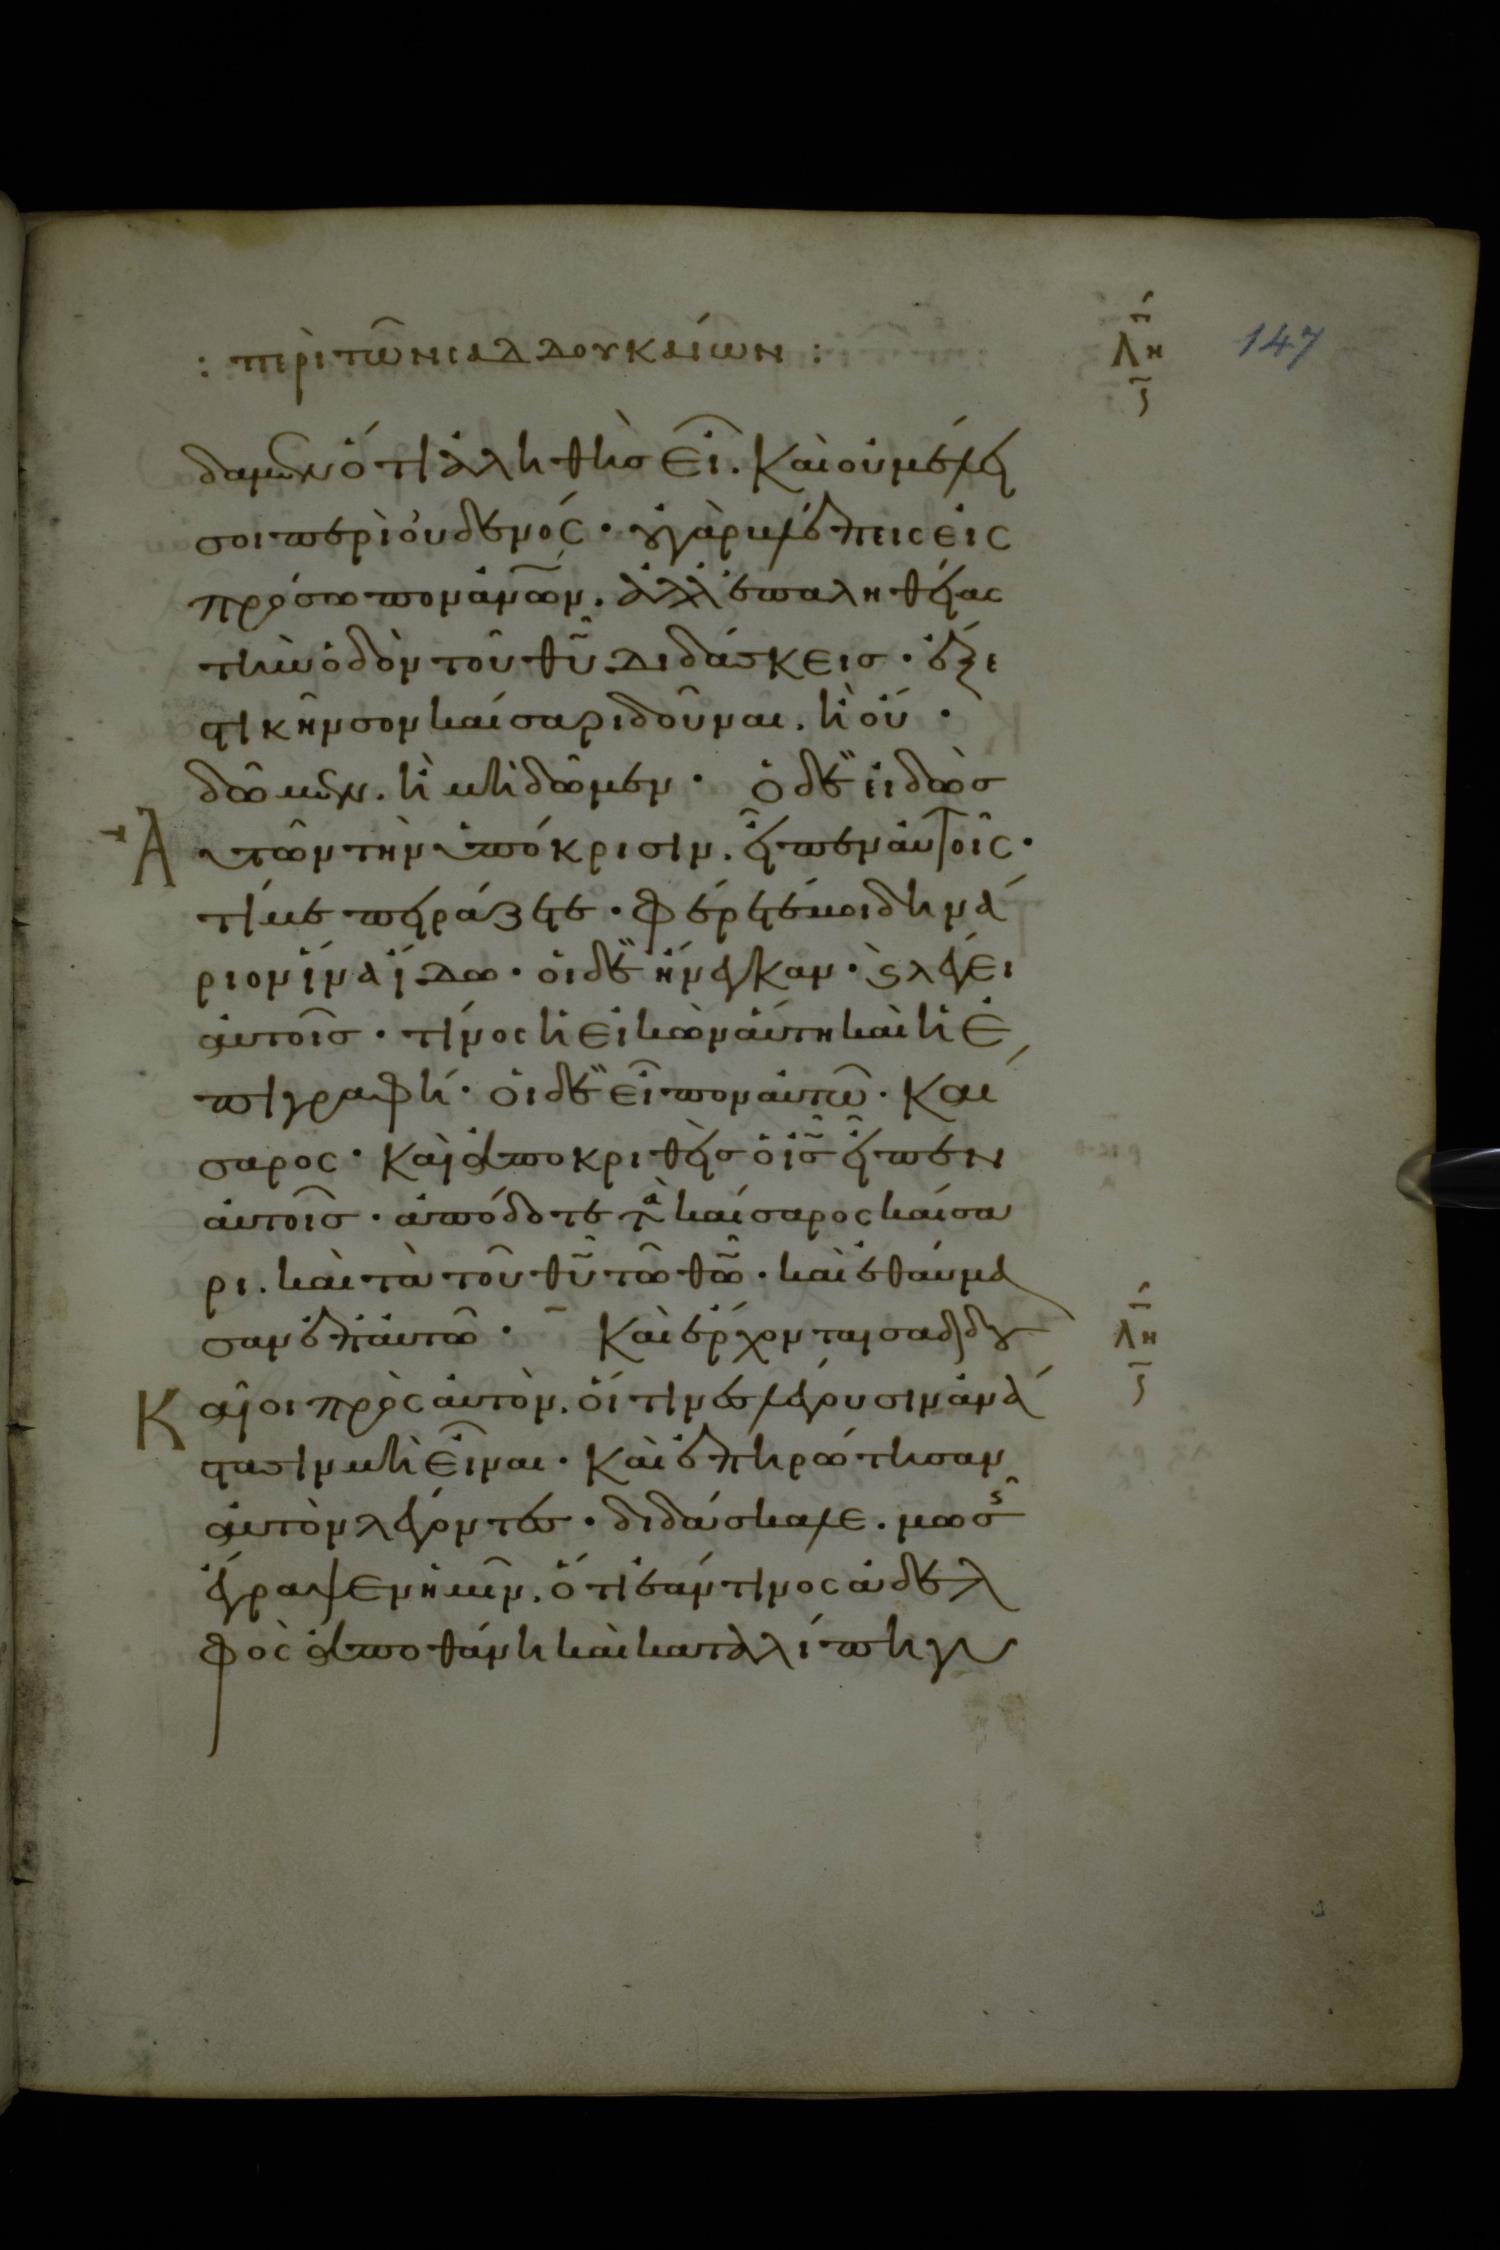 : περὶ τῶν σαδδουκαίων :
λη
147
δαμεν ὅτι ἀληθὴς εἶ. Καὶ οὐ μέλει
σοι περὶ οὐδενός · οὐ γὰρ βλέπεις εἰς
πρόσωπον ἀνων. ἀλλ' ἐπ' ἀληθείας
τὴν ὁδὸν τοῦ θυ διδάσκεις · ἔξε
στι κῆνσον καίσαρι δοῦναι. ἢ οὔ ·
δῶμεν. ἢ μὴ δῶμεν · ὁ δὲ εἰδὼς
Αὐτῶν τὴν ὑπόκρισιν. εἶπεν αὐτοῖς ·
τί με πειράζετε · φέρετέ μοι δηνά
ριον ἵνα ἴδω · οἱ δὲ ἤνεγκαν · καὶ λέγει
αὐτοῖς · τίνος ἡ εἰκὼν αὕτη καὶ ἡ ἐ
πιγραφή · οἱ δὲ εἶπον αὐτῶ · Καί
σαρος · Καὶ ἀποκριθεὶς ὁ ις εἶπεν
αὐτοῖς · ἀπόδοτε τὰ καίσαρος καίσα
ρι. καὶ τὰ τοῦ θυ τῶ θω · καὶ ἐθαύμα
σαν ἐπ' αὐτῶ · Καὶ ἔρχονται σαδδου
λη
Καῖοι πρὸς αὐτὸν. οἵτινες λέγουσιν ἀνά
στασιν μὴ εἶναι · Καὶ ἐπηρώτησαν
αὐτὸν λέγοντες · διδάσκαλε. μωσῆς
ἔγραψεν ἡμῖν. ὅτι ἐάν τινος ἀδελ
φὸς ἀποθάνη καὶ καταλίπη γυ